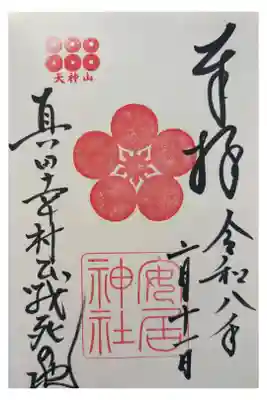 奉拝
令和八年
二月十一日
安居
神社
天神山
真田幸村公戦死の地